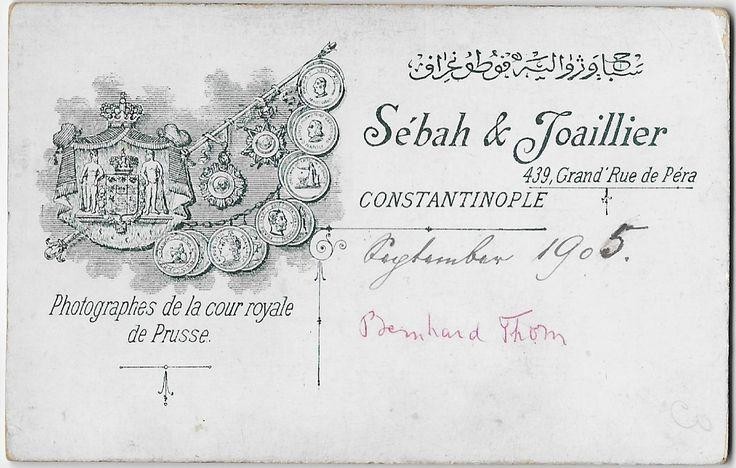 سباح وژوالیه فوطوغراف
Sébah & Joaillier
439, Grand'Rue de Péra
CONSTANTINOPLE
September 1905.
Bernhard Thom
Photographes de la cour royale
de Prusse.